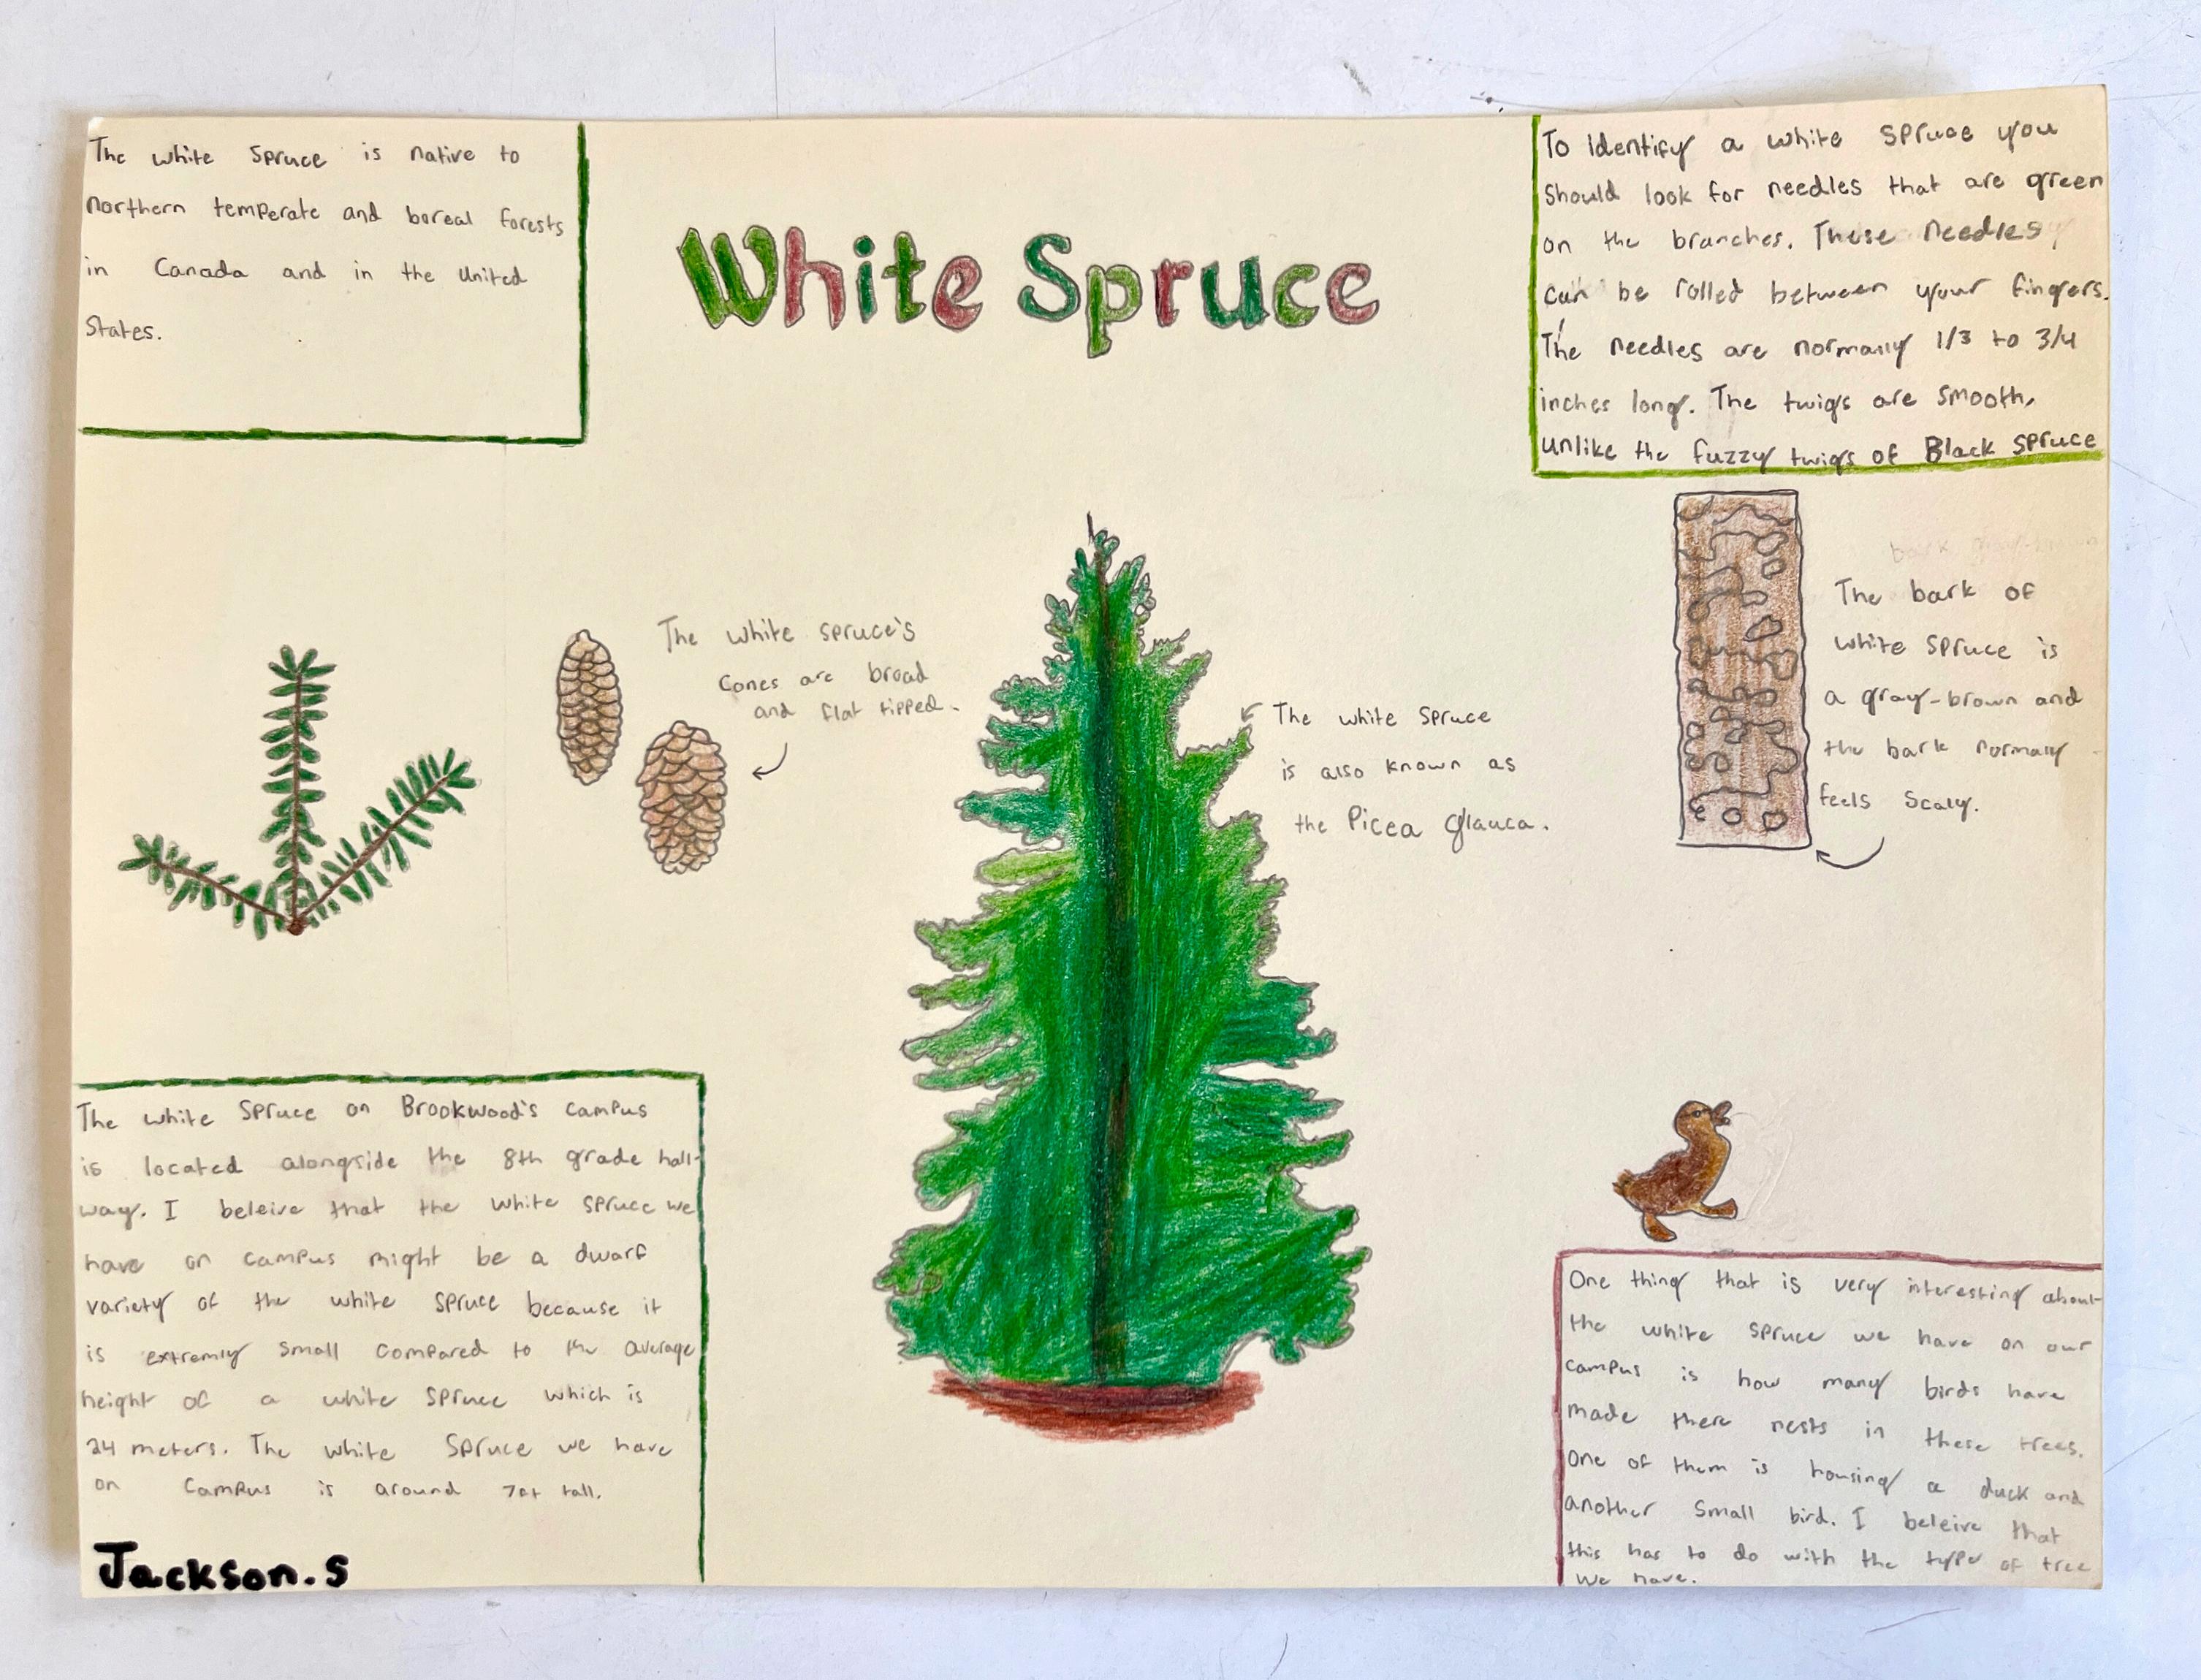 The white Spruce is native to
northern temperate and boreal forests
in Canada and in the United
States.
White Spruce
To identify a white spruce you
should look for needles that are green
on the branches. These needles
can be rolled between your fingers.
The needles are normally 1/3 to 3/4
inches long. The twigs are smooth,
unlike the fuzzy twigs of Black Spruce
The white spruce's
cones are broad
and flat tipped.
The white Spruce
is also known as
the Picea glauca.
The bark of
white spruce is
a gray-brown and
the bark normaly
feels scaly.
The white Spruce on Brookwood's campus
is located alongside the 8th grade hall-
way. I beleive that the white spruce we
have on campus might be a dwarf
variety of the white spruce because it
is extremly small compared to the average
height of a white spruce which is
24 meters. The white Spruce we have
on campus is around 7ft tall.
Jackson.S
One thing that is very interesting about
the white spruce we have on our
campus is how many birds have
made there nests in these trees.
One of them is housing a duck and
another small bird. I beleive that
this has to do with the type of tree
we have.